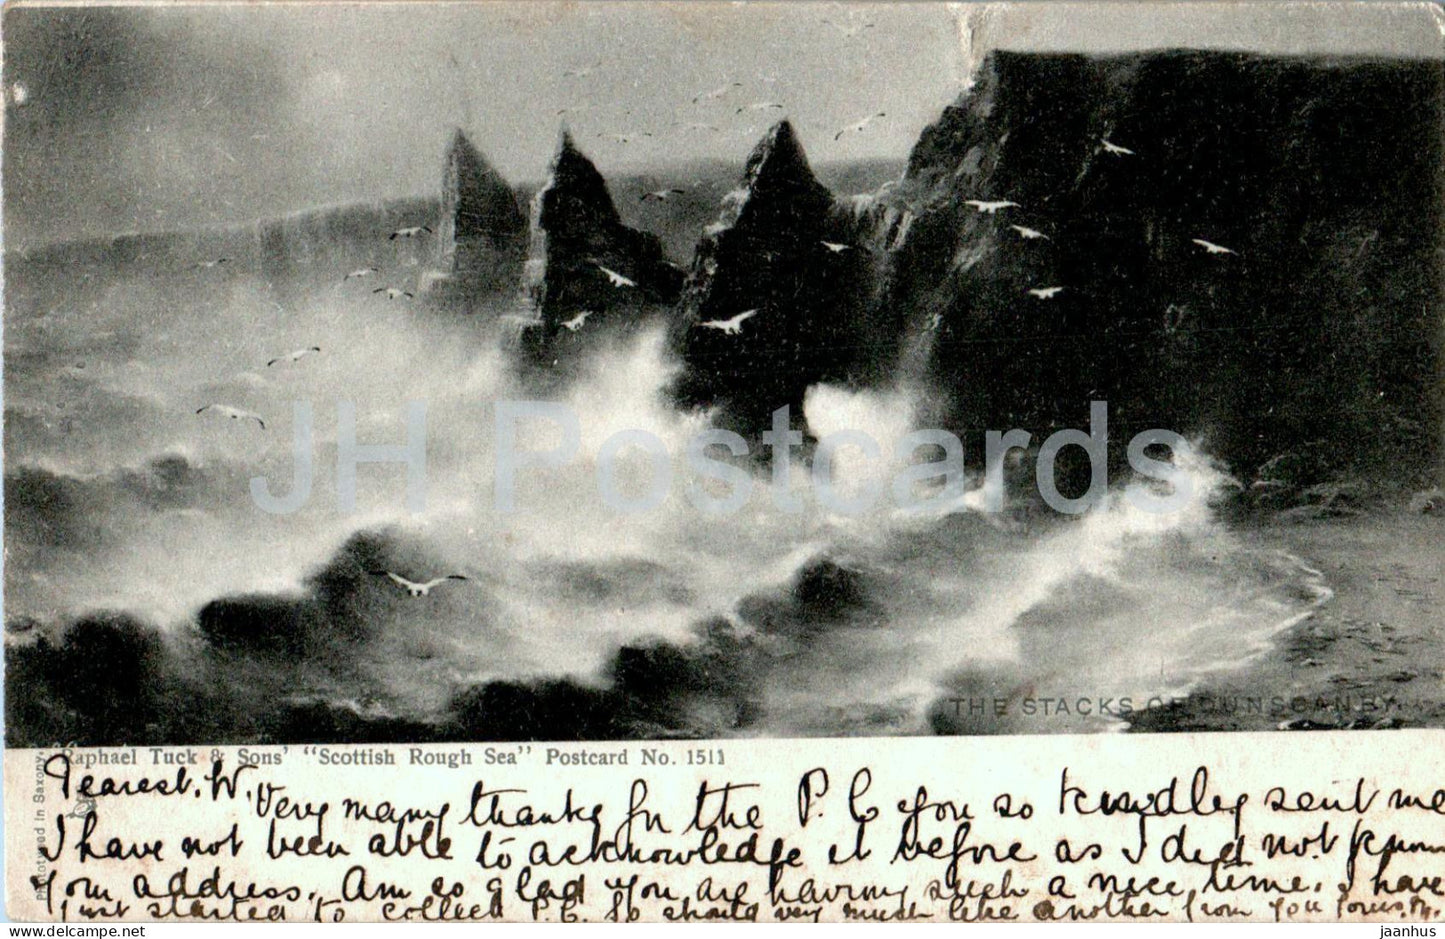 JH Postcards
THE STACKS OF DUNSCANBY.
Raphael Tuck & Sons' "Scottish Rough Sea" Postcard No. 1511
Phototyped in Saxony.
Dearest. W.
Very many thanks for the P.C you so kindly sent me
I have not been able to acknowledge it before as I did not know
your address. Am so glad you are having such a nice time. I have
just started to collect P.C. So should very much like another from you
jaanhus